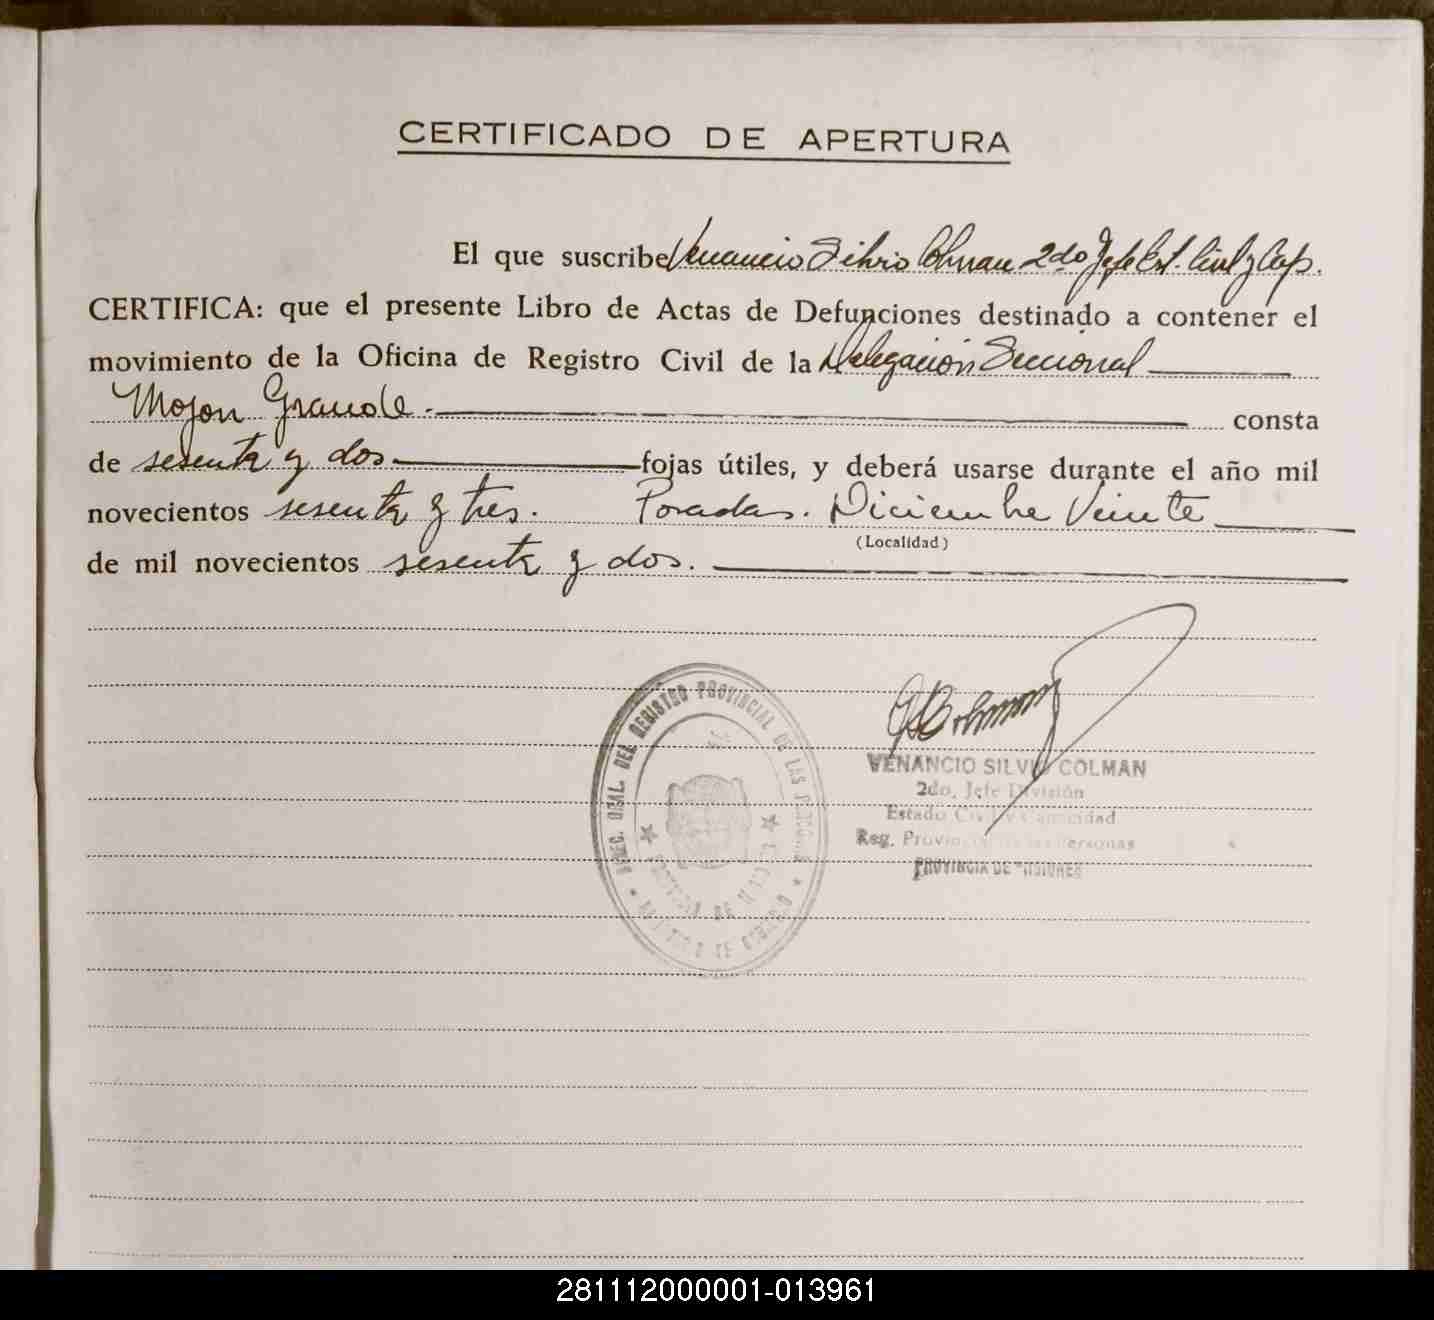 CERTIFICADO DE APERTURA
El que suscribe Venancio Silvio Colman 2do Jefe Est. Civil y Cap.
CERTIFICA: que el presente Libro de Actas de Defunciones destinado a contener el
movimiento de la Oficina de Registro Civil de la Delegación Seccional
Mojon Grande. consta
de sesenta y dos fojas útiles, y deberá usarse durante el año mil
novecientos sesenta y tres. Posadas. Diciembre Veinte
(Localidad)
de mil novecientos sesenta y dos.
DIREC. GRAL. DEL REGISTRO PROVINCIAL DE LAS PERSONAS
PROVINCIA DE MISIONES
MINISTERIO DE GOBIERNO
VENANCIO SILVIO COLMAN
2do. Jefe División
Estado Civil y Capacidad
Reg. Provincial de las Personas
PROVINCIA DE MISIONES
281112000001-013961